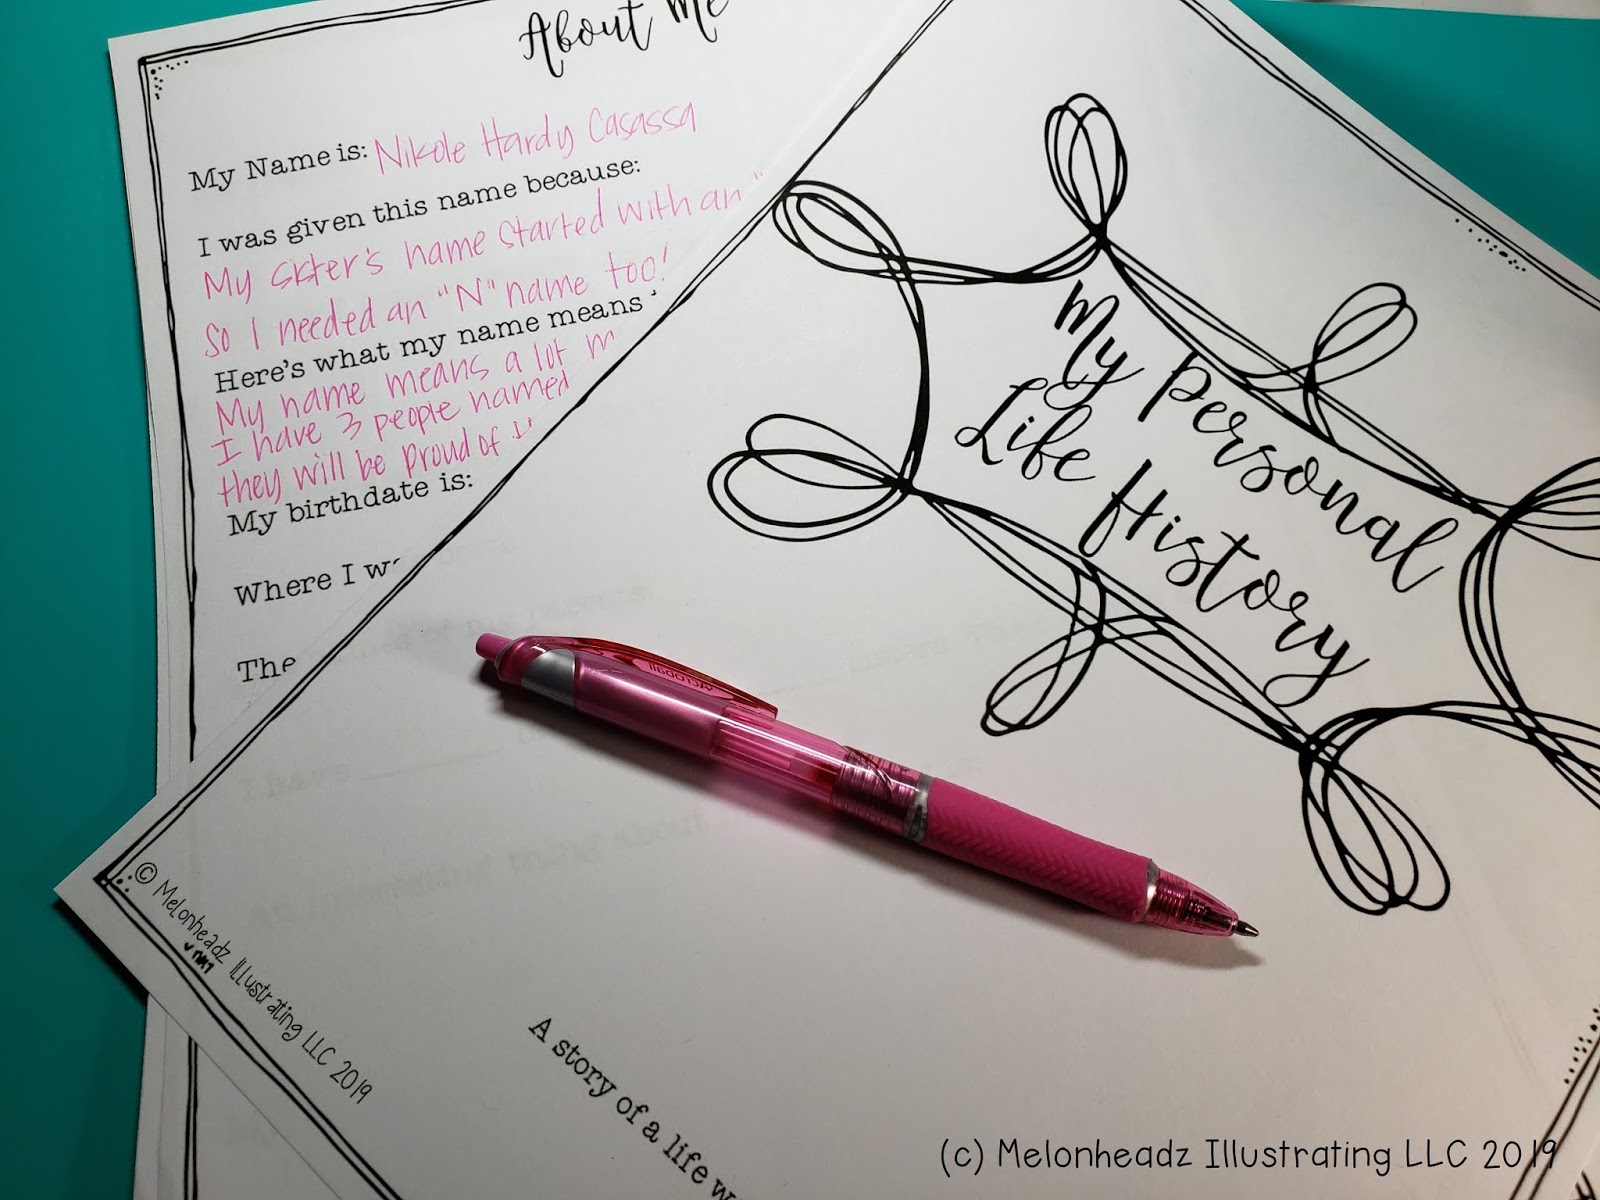 About Me
My Name is: Nikole Hardy Casassa
I was given this name because:
My sister's name started with an "
so I needed an "N" name too!
Here's what my name means
My name means a lot
I have 3 people named
they will be proud of
My birthdate is:
Where I
The
My Personal
Life History
A story of a life
© Melonheadz Illustrating LLC 2019
(c) Melonheadz Illustrating LLC 2019